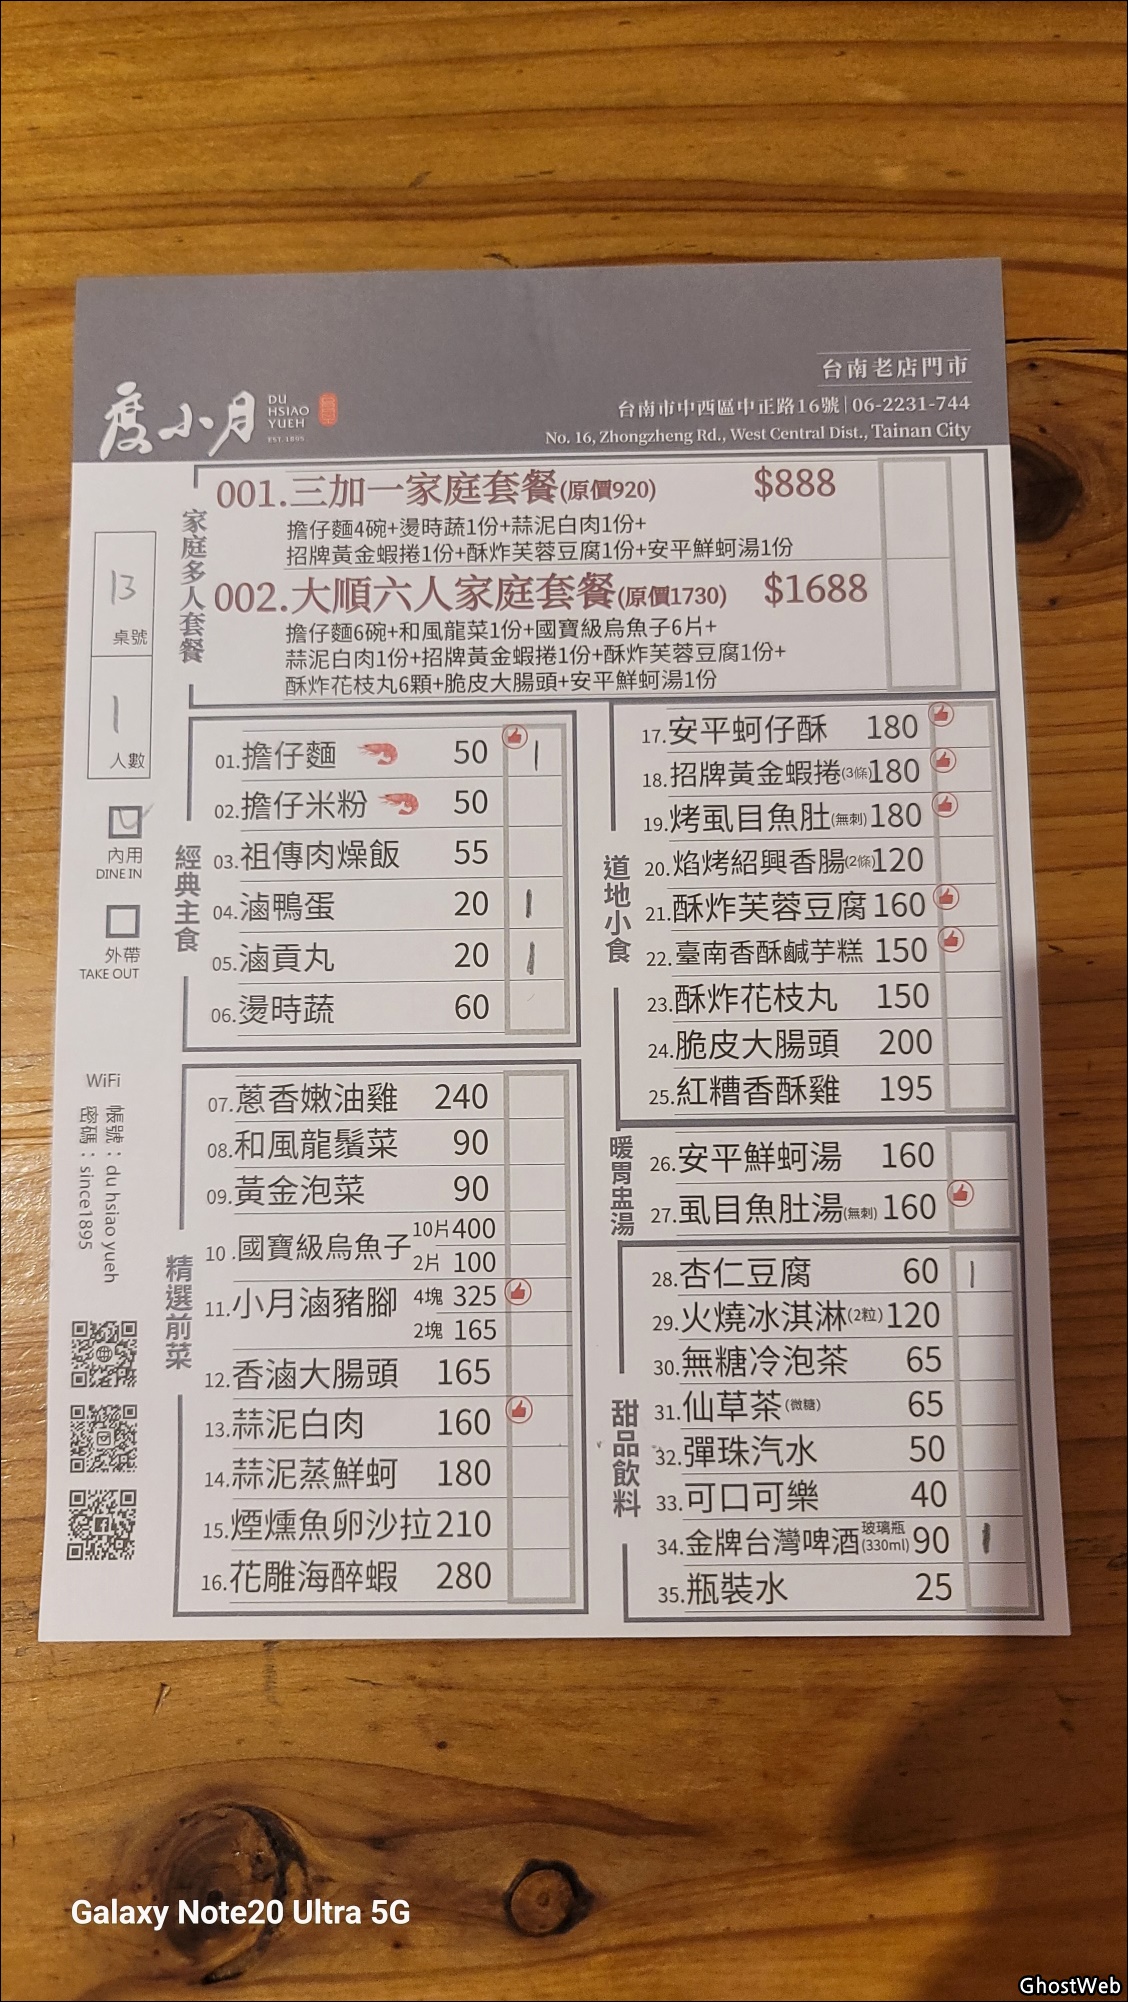 度小月
DU
HSIAO
YUEH
EST.1895
台南老店門市
台南市中西區中正路16號|06-2231-744
No. 16, Zhongzheng Rd., West Central Dist., Tainan City
家庭多人套餐
001.三加一家庭套餐(原價920) $888
擔仔麵4碗+燙時蔬1份+蒜泥白肉1份+
招牌黃金蝦捲1份+酥炸芙蓉豆腐1份+安平鮮蚵湯1份
002.大順六人家庭套餐(原價1730) $1688
擔仔麵6碗+和風龍菜1份+國寶級烏魚子6片+
蒜泥白肉1份+招牌黃金蝦捲1份+酥炸芙蓉豆腐1份+
酥炸花枝丸6顆+脆皮大腸頭+安平鮮蚵湯1份
13
桌號
1
人數
內用
DINE IN
外帶
TAKE OUT
WiFi
帳號：du hsiao yueh
密碼：since1895
經典主食
01.擔仔麵 50 1
02.擔仔米粉 50
03.祖傳肉燥飯 55
04.滷鴨蛋 20 1
05.滷貢丸 20 1
06.燙時蔬 60
精選前菜
07.蔥香嫩油雞 240
08.和風龍鬚菜 90
09.黃金泡菜 90
10.國寶級烏魚子 10片 400
2片 100
11.小月滷豬腳 4塊 325
2塊 165
12.香滷大腸頭 165
13.蒜泥白肉 160
14.蒜泥蒸鮮蚵 180
15.煙燻魚卵沙拉 210
16.花雕海醉蝦 280
道地小食
17.安平蚵仔酥 180
18.招牌黃金蝦捲(3條) 180
19.烤虱目魚肚(無刺) 180
20.焰烤紹興香腸(2條) 120
21.酥炸芙蓉豆腐 160
22.臺南香酥鹹芋糕 150
23.酥炸花枝丸 150
24.脆皮大腸頭 200
25.紅糟香酥雞 195
暖胃盅湯
26.安平鮮蚵湯 160
27.虱目魚肚湯(無刺) 160
甜品飲料
28.杏仁豆腐 60 1
29.火燒冰淇淋(2粒) 120
30.無糖冷泡茶 65
31.仙草茶(微糖) 65
32.彈珠汽水 50
33.可口可樂 40
34.金牌台灣啤酒 玻璃瓶(330ml) 90 1
35.瓶裝水 25
Galaxy Note20 Ultra 5G
GhostWeb